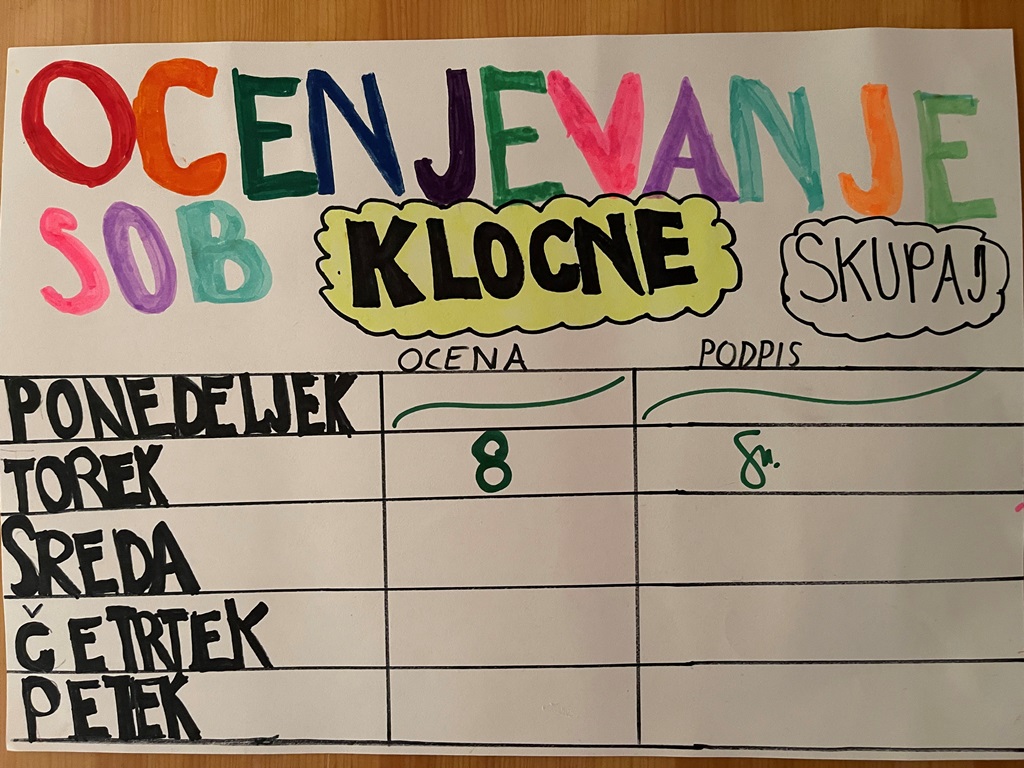 OCENJEVANJE
SOB KLOCNE SKUPAJ
OCENA PODPIS
PONEDELJEK
TOREK 8
SREDA
ČETRTEK
PETEK